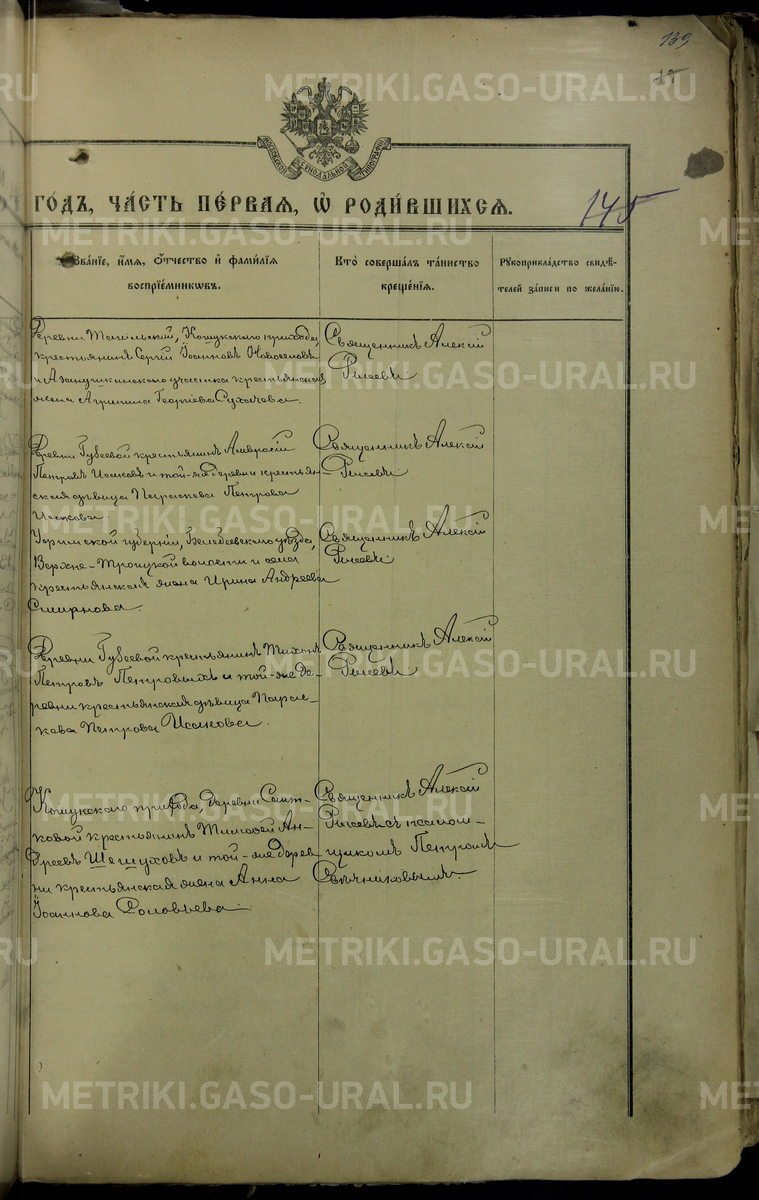 139
METRIKI.GASO-URAL.RU
МОСКОВСКОЙ СѴНОДАЛЬНОЙ ТИПОГРАФІИ
ГОДЪ, ЧАСТЬ ПЕРВАЯ, Ѡ РОДИВШИХСЯ.
145
Званіе, имя, отчество и фамилія
воспріемниковъ.
Кто совершалъ таинство
крещенія.
Рукоприкладство свидѣ-
телей записи по желанію.
Деревни Кошукскаго прихода,
крестьянинъ Сергій Іоанновъ Новоселовъ
и Азанушкинского участка крестьянская
жена Агрипина Георгіева Сухачова.
Священникъ Алексій
Рысевъ
Деревни Губеевой крестьянинъ Амвросій
Петровъ Исаковъ и той-же деревни крестьян-
ская дѣвица Параскева Петрова
Исакова
Священникъ Алексій
Рысевъ
Уфимской губерніи, Белебеевского уѣзда,
Верхне-Троицкой волости и села
крестьянская жена Ирина Андреева
Смирнова.
Священникъ Алексій
Рысевъ
Деревни Губеевой крестьянинъ Тихонъ
Петровъ Петровыхъ и той-же де-
ревни крестьянская дѣвица Парас-
кева Петрова Исакова.
Священникъ Алексій
Рысевъ
Кошукского прихода, деревни Саит-
ковой крестьянинъ Тимофей Ан-
дреевъ Шешуковъ и той-же дерев-
ни крестьянская жена Анна
Іоаннова Соловьева.
Священникъ Алексій
Рысевъ съ псалом-
щикомъ Петромъ
Свѣчниковымъ.
METRIKI.GASO-URAL.RU